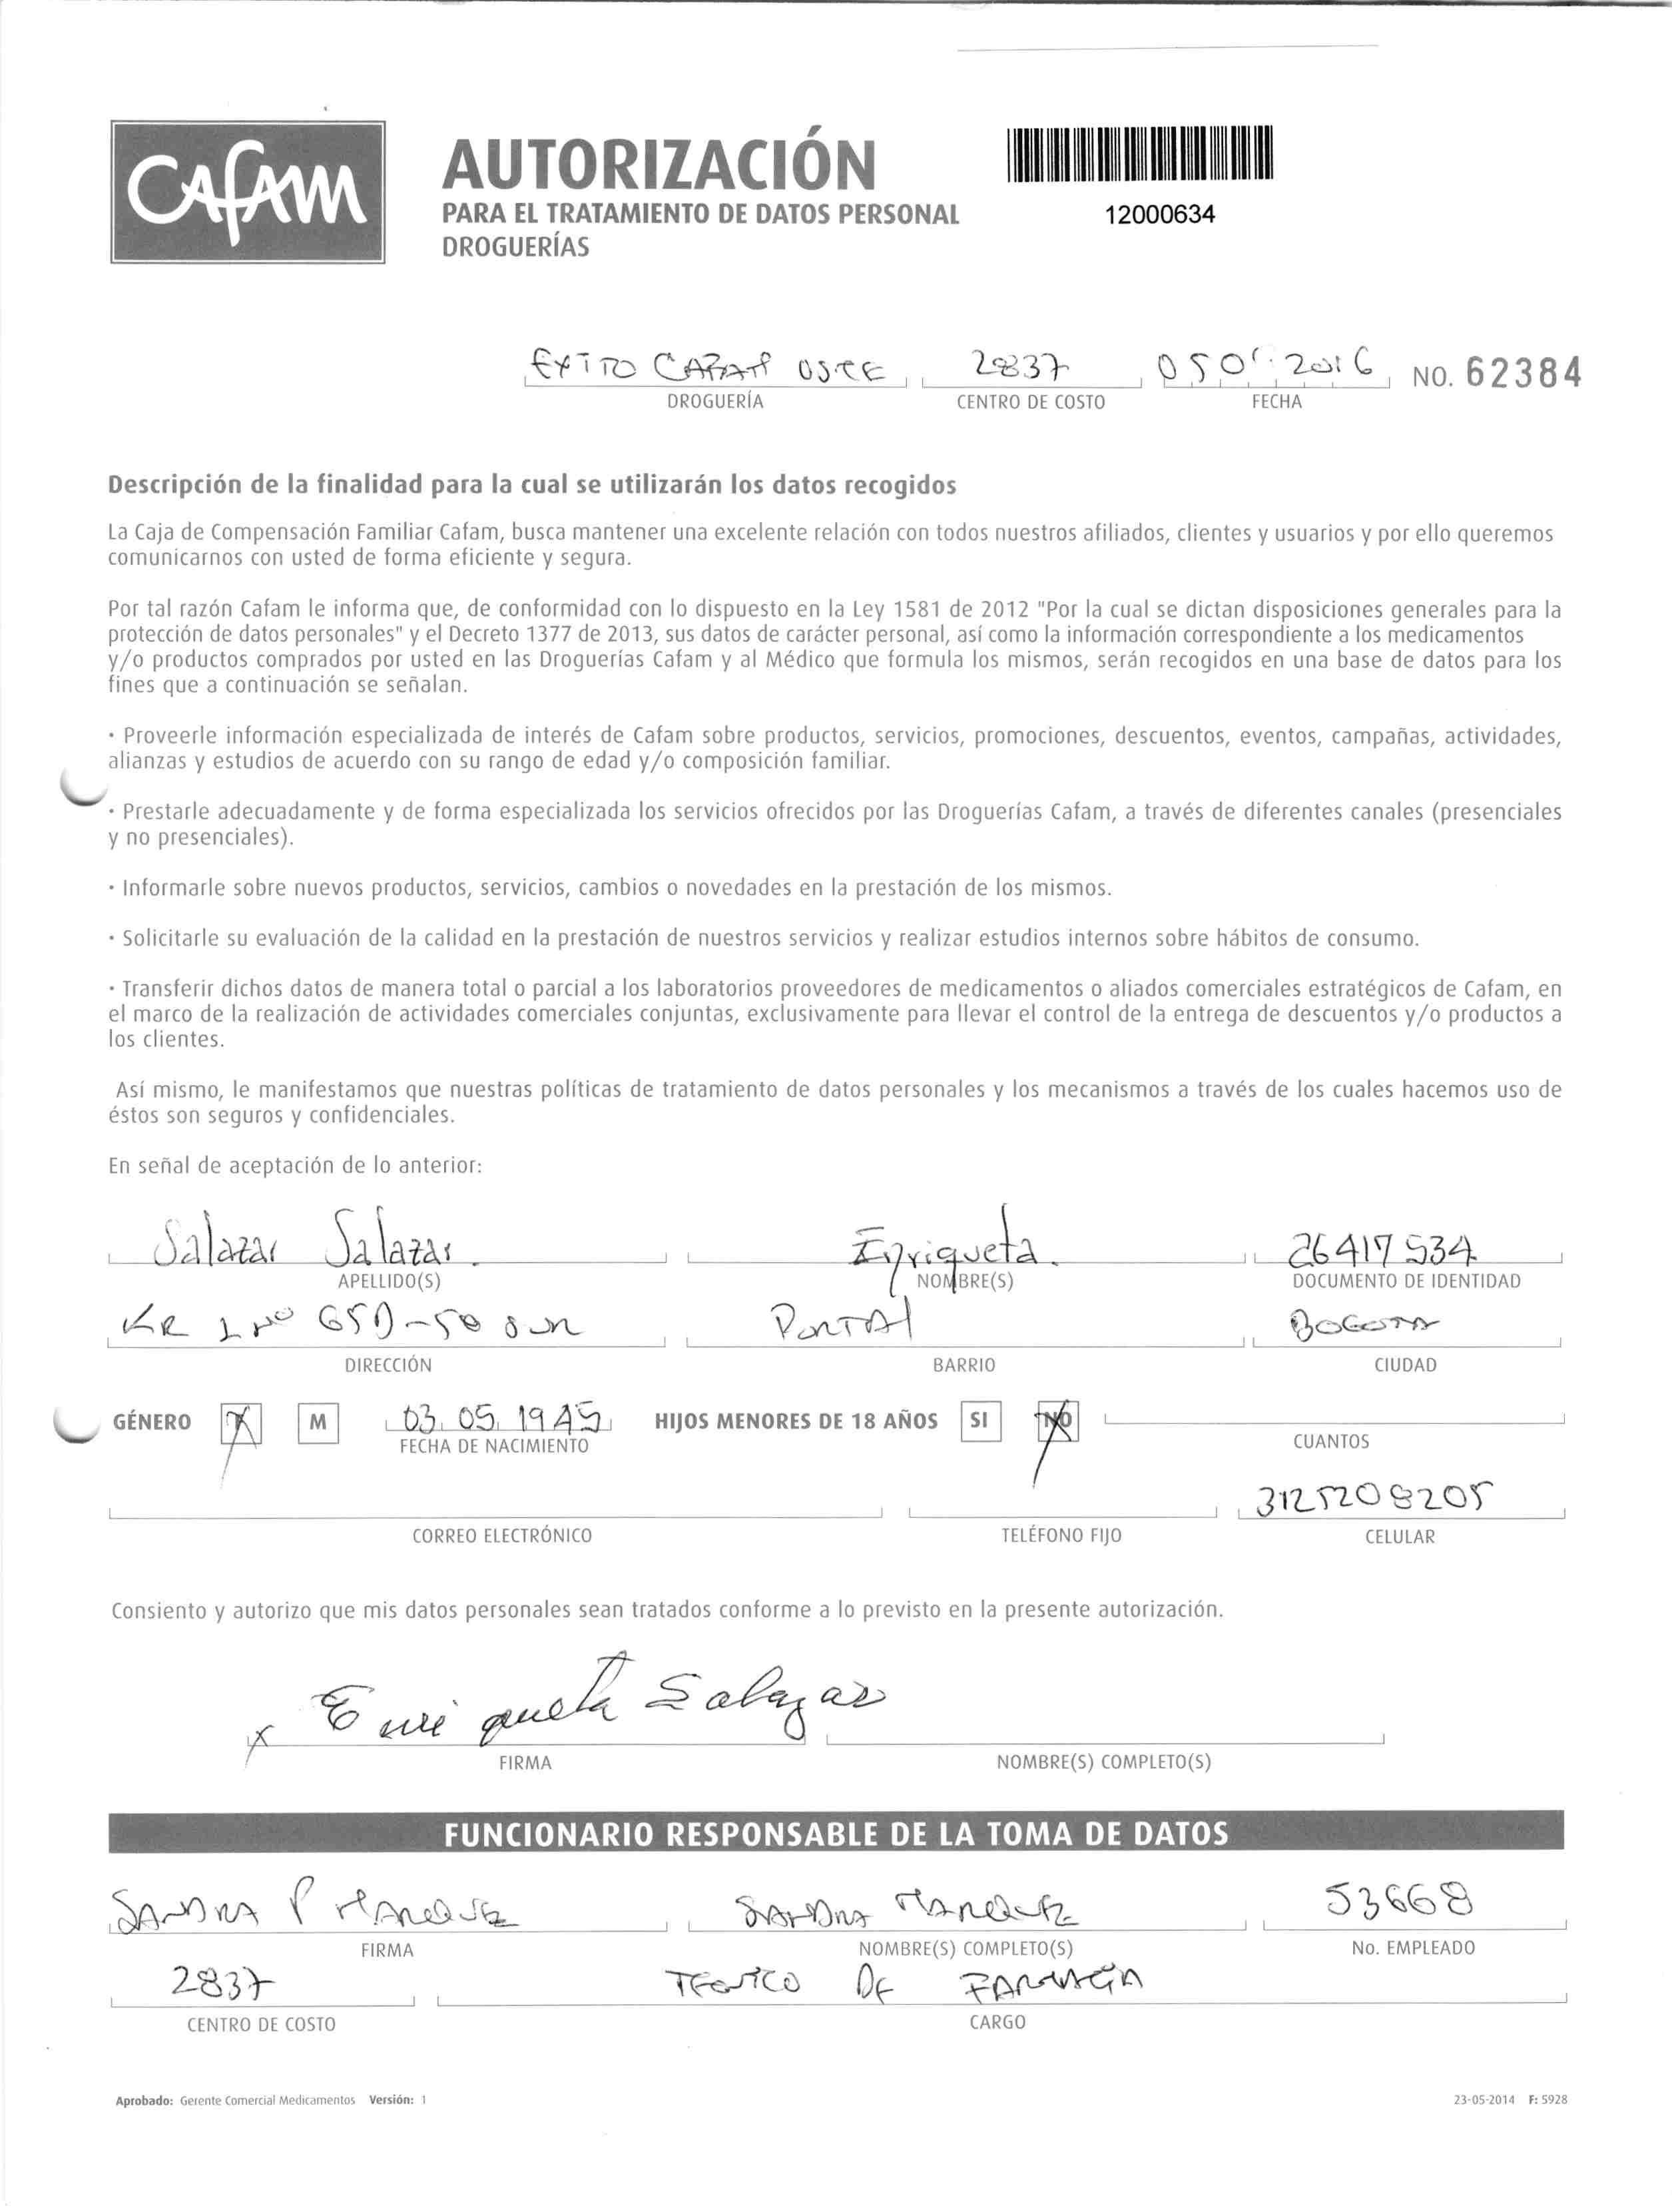 CAFAM
AUTORIZACIÓN
PARA EL TRATAMIENTO DE DATOS PERSONAL
DROGUERÍAS
12000634
EXITO CAFAM 2837 2016 NO. 62384
DROGUERÍA CENTRO DE COSTO FECHA
Descripción de la finalidad para la cual se utilizarán los datos recogidos
La Caja de Compensación Familiar Cafam, busca mantener una excelente relación con todos nuestros afiliados, clientes y usuarios y por ello queremos
comunicarnos con usted de forma eficiente y segura.
Por tal razón Cafam le informa que, de conformidad con lo dispuesto en la Ley 1581 de 2012 "Por la cual se dictan disposiciones generales para la
protección de datos personales" y el Decreto 1377 de 2013, sus datos de carácter personal, así como la información correspondiente a los medicamentos
y/o productos comprados por usted en las Droguerías Cafam y al Médico que formula los mismos, serán recogidos en una base de datos para los
fines que a continuación se señalan.
· Proveerle información especializada de interés de Cafam sobre productos, servicios, promociones, descuentos, eventos, campañas, actividades,
alianzas y estudios de acuerdo con su rango de edad y/o composición familiar.
· Prestarle adecuadamente y de forma especializada los servicios ofrecidos por las Droguerías Cafam, a través de diferentes canales (presenciales
y no presenciales).
· Informarle sobre nuevos productos, servicios, cambios o novedades en la prestación de los mismos.
· Solicitarle su evaluación de la calidad en la prestación de nuestros servicios y realizar estudios internos sobre hábitos de consumo.
· Transferir dichos datos de manera total o parcial a los laboratorios proveedores de medicamentos o aliados comerciales estratégicos de Cafam, en
el marco de la realización de actividades comerciales conjuntas, exclusivamente para llevar el control de la entrega de descuentos y/o productos a
los clientes.
Así mismo, le manifestamos que nuestras políticas de tratamiento de datos personales y los mecanismos a través de los cuales hacemos uso de
éstos son seguros y confidenciales.
En señal de aceptación de lo anterior:
Salazar Salazar. Enriqueta. 26417534
APELLIDO(S) NOMBRE(S) DOCUMENTO DE IDENTIDAD
KR 1 Nº 65D-58 SUR PORTAL BOGOTA
DIRECCIÓN BARRIO CIUDAD
GÉNERO M 03 05 1945 HIJOS MENORES DE 18 AÑOS SI NO
FECHA DE NACIMIENTO CUANTOS
3125208205
CORREO ELECTRÓNICO TELÉFONO FIJO CELULAR
Consiento y autorizo que mis datos personales sean tratados conforme a lo previsto en la presente autorización.
x Enriqueta Salazar
FIRMA NOMBRE(S) COMPLETO(S)
FUNCIONARIO RESPONSABLE DE LA TOMA DE DATOS
SANDRA P MARQUEZ SANDRA MARQUEZ 53668
FIRMA NOMBRE(S) COMPLETO(S) No. EMPLEADO
2837 TECNICO DE FARMACIA
CENTRO DE COSTO CARGO
Aprobado: Gerente Comercial Medicamentos Versión: 1 23-05-2014 F: 5928